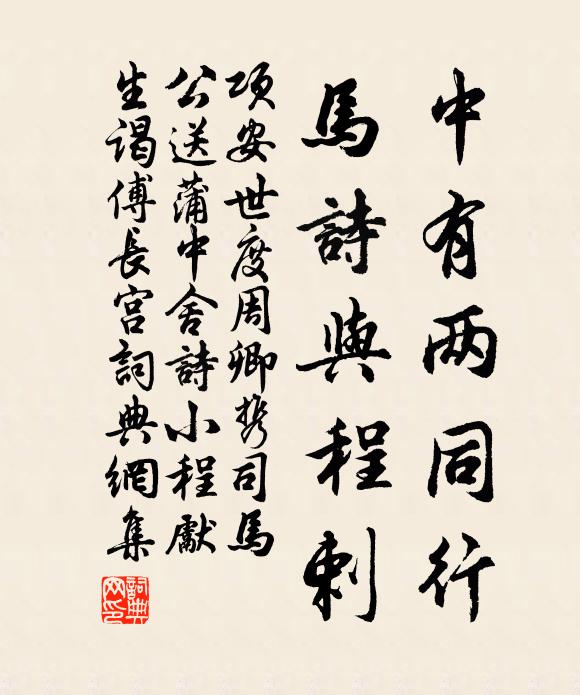 中有两同行
馬詩與程刺
項安世度周卿携司馬
公送蒲中舍詩小程獻
生謁傅長官詞典網集
詞典
网印